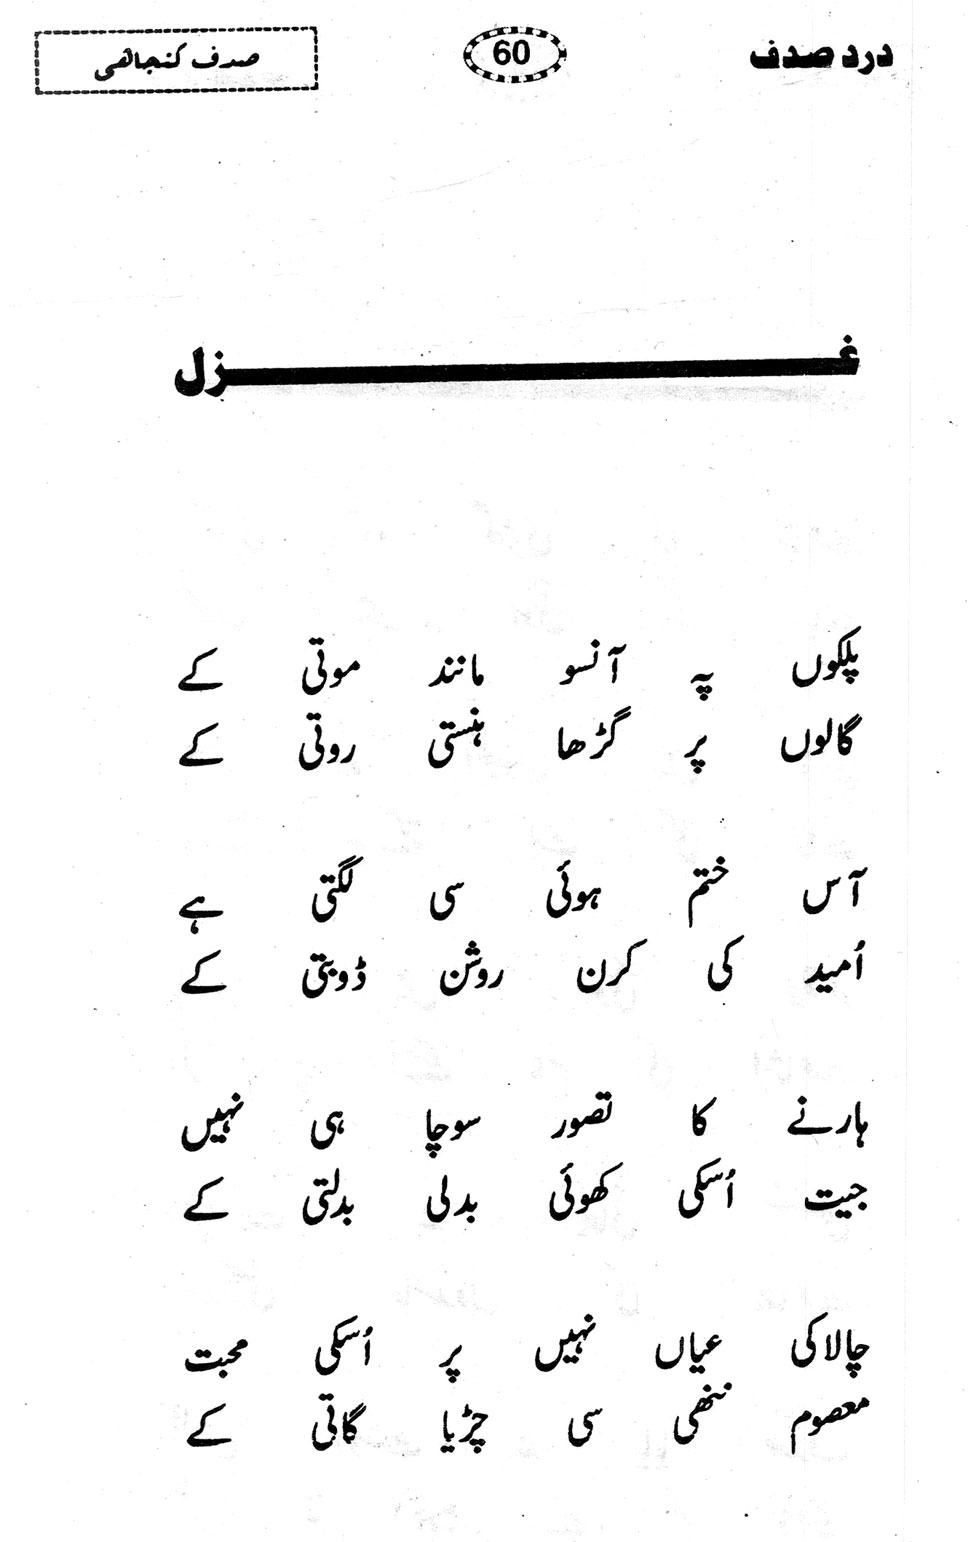 درد صدف 60 صدف کنجاهی
غزل
پلکوں پہ آنسو مانند موتی کے
گالوں پر گڑھا ہنستی روتی کے
آس ختم ہوئی سی لگتی ہے
اُمید کی کرن روشن ڈوبتی کے
ہارنے کا تصور سوچا ہی نہیں
جیت اُسکی کھوئی بدلی بدلتی کے
چالاکی عیاں نہیں پر اُسکی محبت
معصوم ننھی سی چڑیا گاتی کے